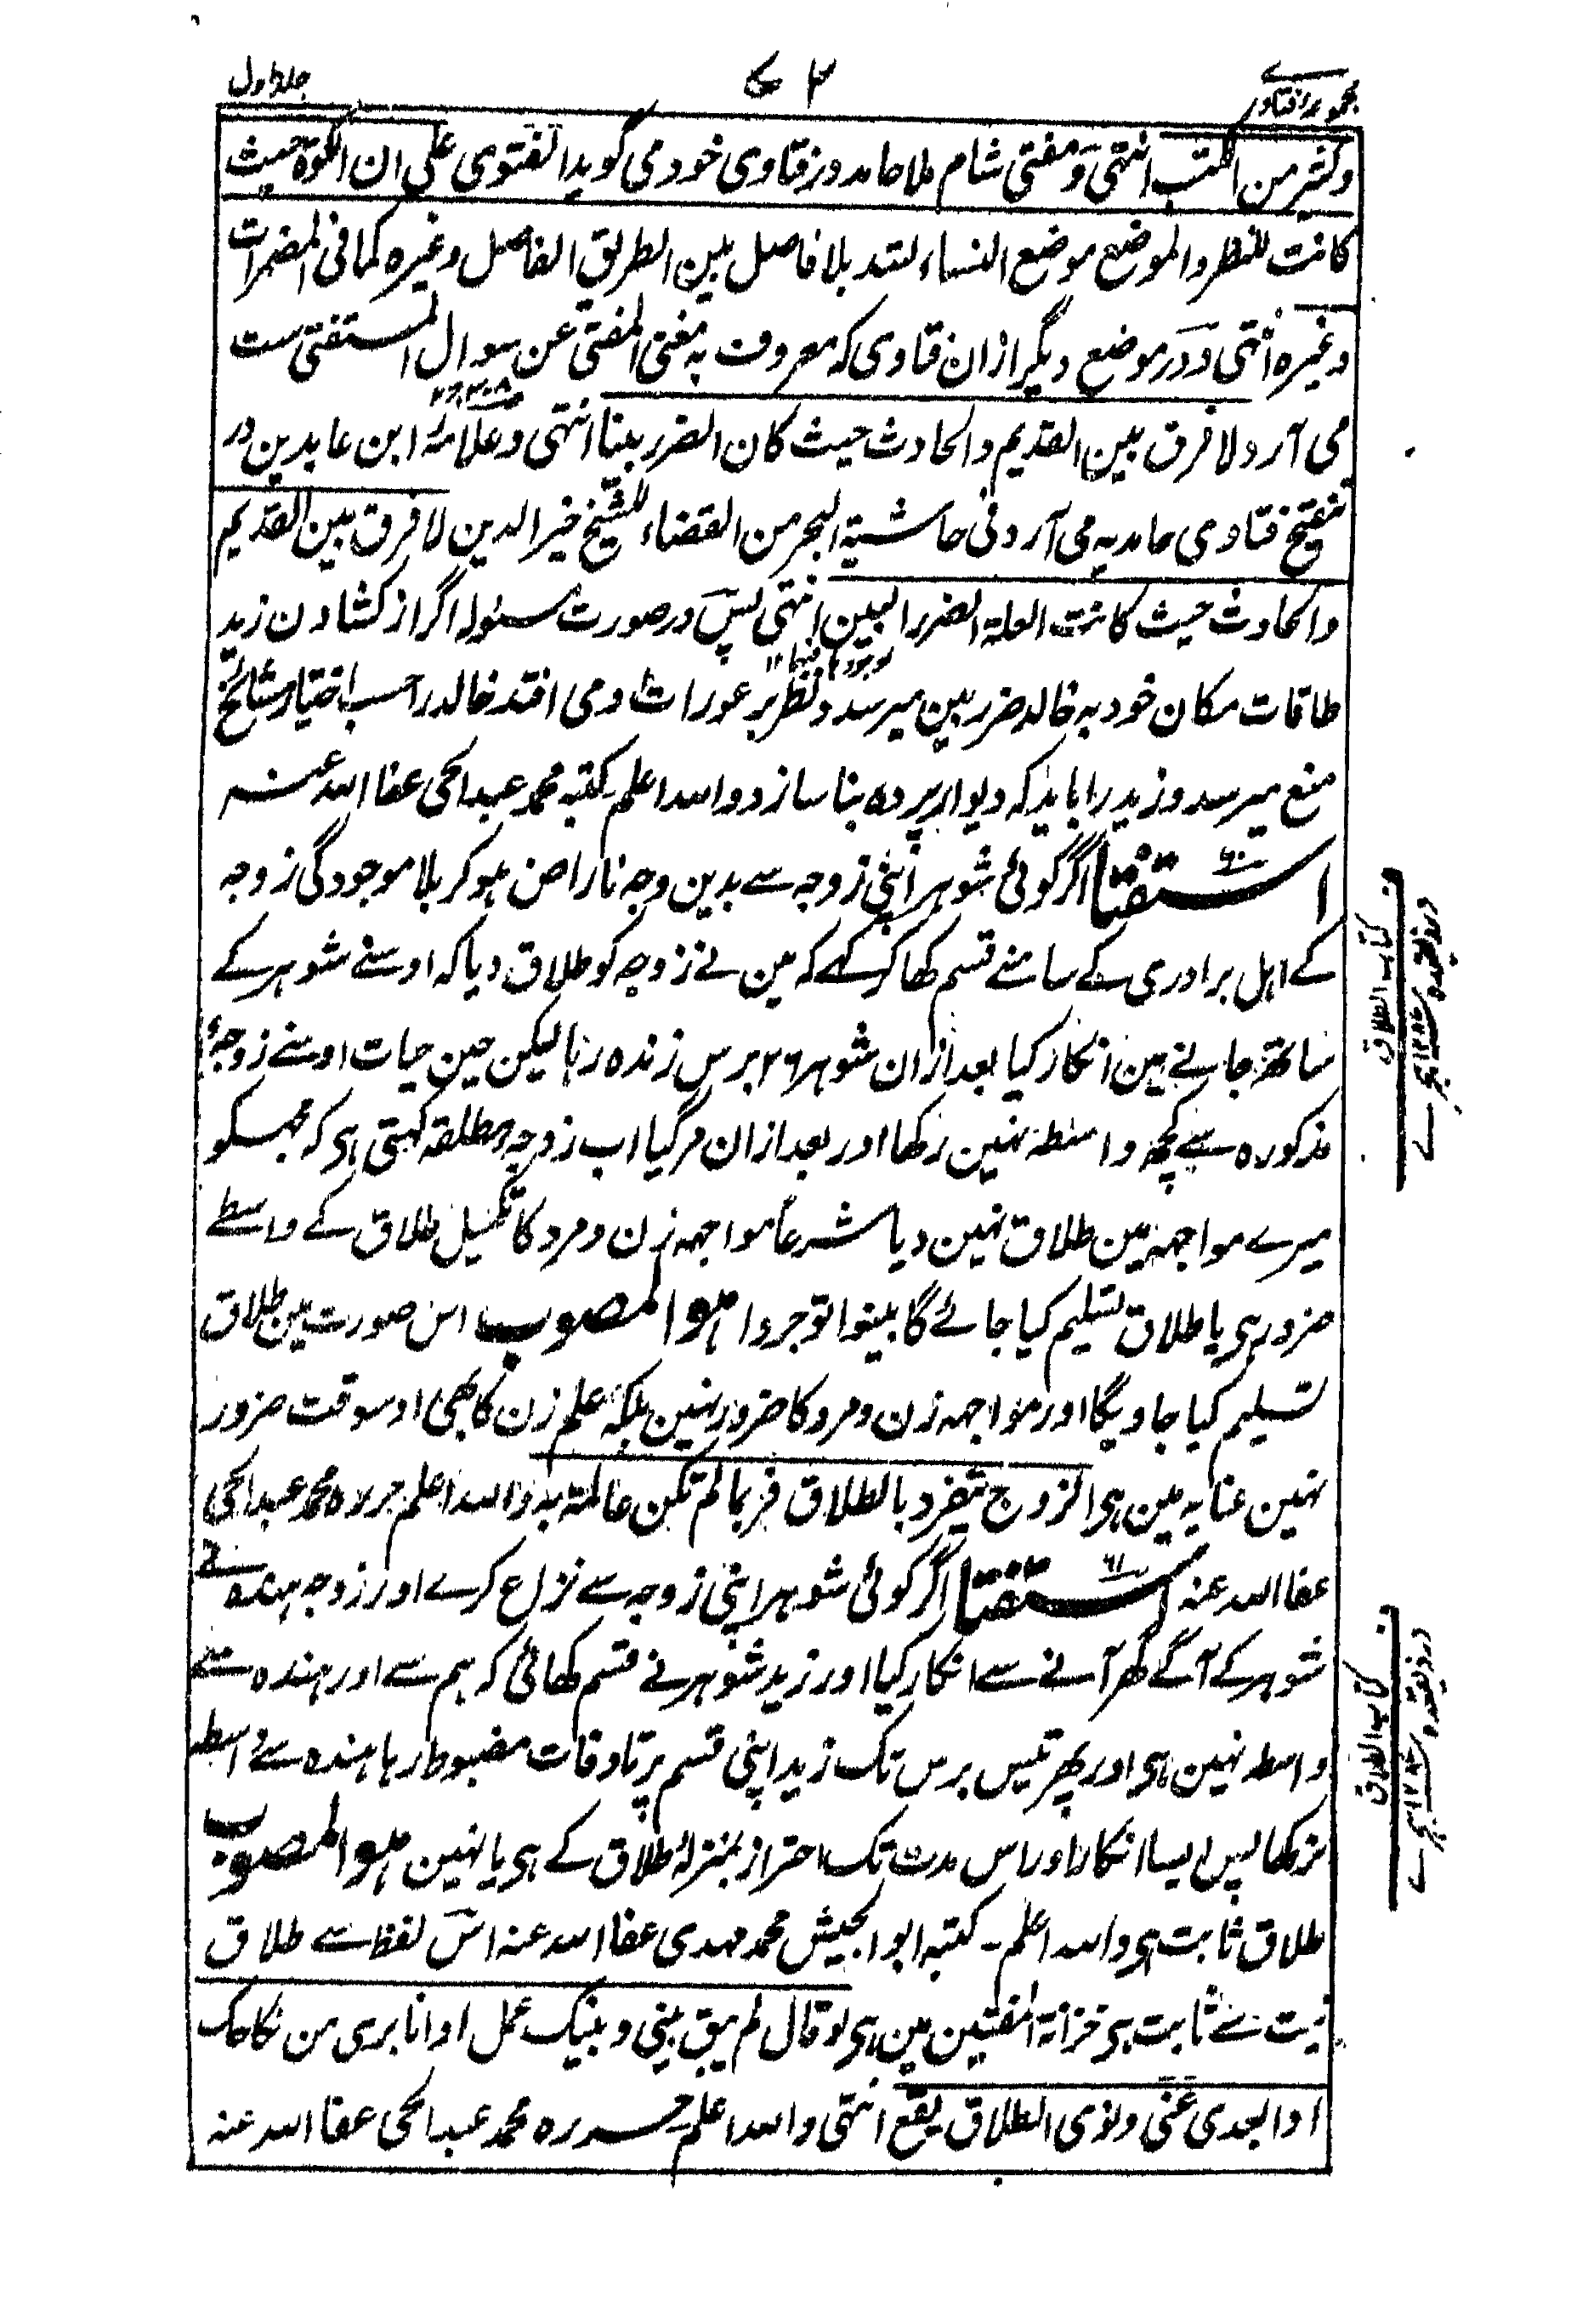 مجموعہ فتاوے
جلد اول
وکثیر من الکتب انتہی و مفتی شام ملا حامد در فتاوی خود می گوید الفتوی علی ان الکوۃ حیث
کانت للنظر والموضع موضع النساء لتسد بلا فاصل بین الطریق الفاصل وغیرہ کما فی المضمرات
وغیرہ انتہی و در موضع دیگر از ان فتاوی کہ معروف بہ مغنی المفتی عن سوال المستفتی ست
می آرد لا فرق بین القدیم والحادث حیث کان الضرر بینا انتہی و علامہ ابن عابدین در
تنقیح فتاوی حامدیہ می آرد فی حاشیۃ البحر من القضاء للشیخ خیر الدین لا فرق بین القدیم
والحادث حیث کانت العلۃ الضرر البین انتہی پس در صورت مسئولہ اگر از کشادن زید
طاقات مکان خود بہ خالد ضرر بین میرسد و نظر بر عورات او می افتد خالد را حسب اختیار مشائخ
منع میرسد و زید را باید کہ دیوار پردہ بنا سازد واللہ اعلم کتبہ محمد عبدالحی عفا اللہ عنہ
استفتا ۶۰ اگر کوئی شوہر اپنی زوجہ سے بدین وجہ ناراض ہوکر بلا موجودگی زوجہ
کے اہل برادری کے سامنے قسم کھا کر کہے کہ مین نے زوجہ کو طلاق دیا کہ اوسنے شوہر کے
ساتھ جانے مین انکار کیا بعد ازان شوہر ۲۶ برس زندہ رہا لیکن حین حیات اوسنے زوجۂ
مذکورہ سے کچھ واسطہ نہین رکھا اور بعد ازان مر گیا اب زوجہ مطلقہ کہتی ہی کہ مجھکو
میرے مواجہہ مین طلاق نہین دیا شرعاً مواجہہ زن و مرد کا تکمیل طلاق کے واسطے
ضرور ہی یا طلاق تسلیم کیا جائے گا بینوا توجروا ہو المصوب اس صورت مین طلاق
تسلیم کیا جاویگا اور مواجہہ زن و مرد کا ضرور نہین بلکہ علم زن کا بھی اوسوقت ضرور
نہین عنایہ مین ہی الزوج یتفرد بالطلاق فربما لم تکن عالمۃ بہ واللہ اعلم حررہ محمد عبدالحی
عفا اللہ عنہ استفتا ۶۱ اگر کوئی شوہر اپنی زوجہ سے نزاع کرے اور زوجہ ہندہ نے
شوہر کے آگے گھر آنے سے انکار کیا اور زید شوہر نے قسم کھائی کہ ہم سے اور ہندہ سے
واسطہ نہین ہی اور پھر تیس برس تک زید اپنی قسم پر تا وفات مضبوط رہا ہندہ سے واسطہ
نرکھا پس ایسا انکار اور اس مدت تک احتراز بمنزلۂ طلاق کے ہی یا نہین ہو المصوب
طلاق ثابت ہی واللہ اعلم۔ کتبہ ابو الجیش محمد مہدی عفا اللہ عنہ اس لفظ سے طلاق
نیت سے ثابت ہی خزانۃ المفتین مین ہی لو قال لم یبق بینی و بینک عمل او انا بری من نکاحک
او ابعدی عنی و نوی الطلاق یقع انتہی واللہ اعلم حررہ محمد عبدالحی عفا اللہ عنہ
کتاب الطلاق
کتاب الطلاق